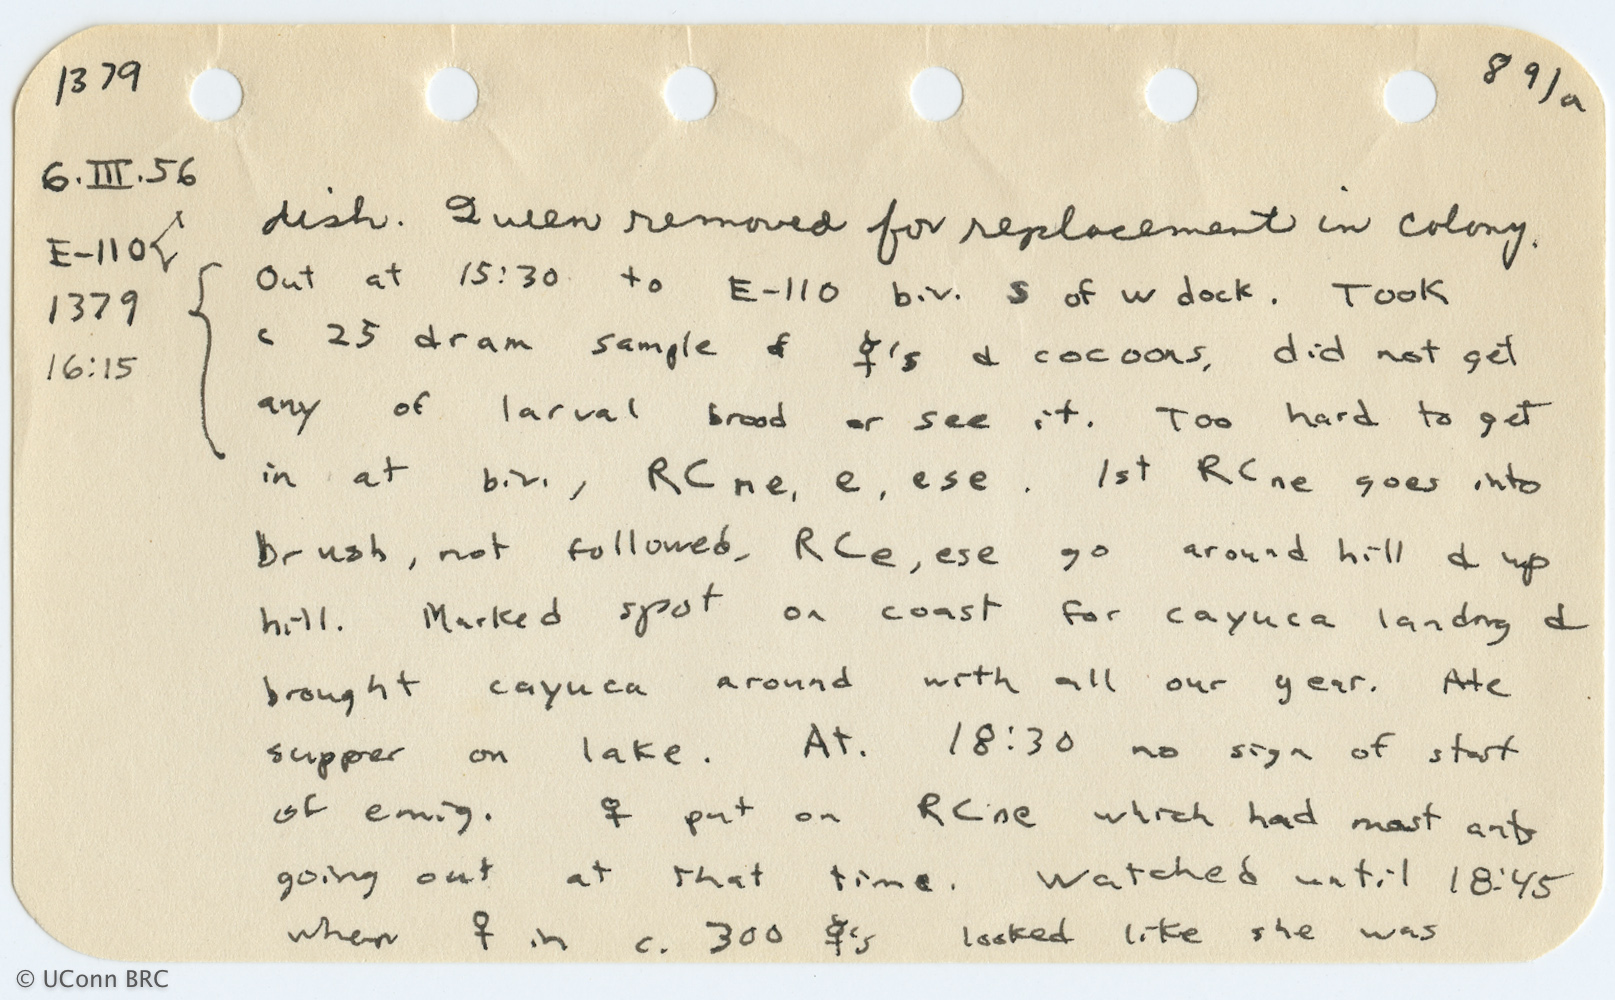 1379
89/a
6.III.56
E-110
1379
16:15
dish. Queen removed for replacement in colony.
Out at 15:30 to E-110 biv. S of w dock. Took
c 25 dram sample of ☿'s & cocoons, did not get
any of larval brood or see it. Too hard to get
in at biv., RC ne, e, ese. 1st RC ne goes into
brush, not followed, RC e, ese go around hill & up
hill. Marked spot on coast for cayuca landing &
brought cayuca around with all our gear. Ate
supper on lake. At. 18:30 no sign of start
of emig. ♀ put on RC ne which had most ants
going out at that time. Watched until 18:45
when ♀ in c. 300 ☿'s looked like she was
© UConn BRC